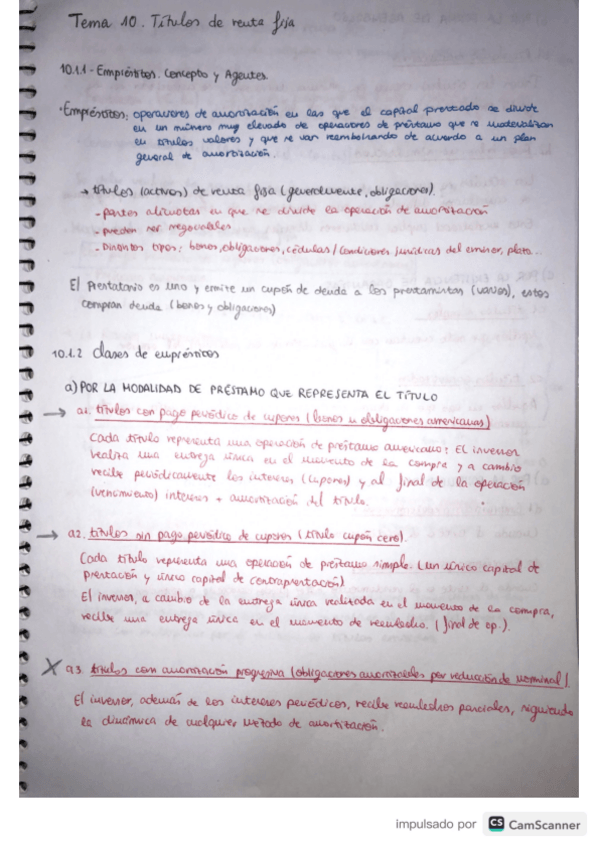 Tema 10. Títulos de renta fija
10.1.1 - Empréstitos. Concepto y Agentes
· Empréstitos: operaciones de amortización en las que el capital prestado se divide
en un número muy elevado de operaciones de préstamo que se materializan
en títulos valores y que se van reembolsando de acuerdo a un plan
general de amortización.
→ títulos (activos) de renta fija (generalmente, obligaciones).
- partes alícuotas en que se divide la operación de amortización
- pueden ser negociables
- Distintos tipos: bonos, obligaciones, cédulas / Condiciones jurídicas del emisor, plazo...
El Prestatario es uno y emite un cupón de deuda a los prestamistas (varios), estos
compran deuda (bonos y obligaciones)
10.1.2 Clases de empréstitos
a) POR LA MODALIDAD DE PRÉSTAMO QUE REPRESENTA EL TÍTULO
→ a1. títulos con pago periódico de cupones (bonos u obligaciones americanas)
Cada título representa una operación de préstamo americano: El inversor
realiza una entrega única en el momento de la compra y a cambio
recibe periódicamente los intereses (cupones) y al final de la operación
(vencimiento) intereses + amortización del título.
→ a2. títulos sin pago periódico de cupones (título cupón cero).
Cada título representa una operación de préstamo simple. (un único capital de
prestación y único capital de contraprestación)
El inversor, a cambio de la entrega única realizada en el momento de la compra,
recibe una entrega única en el momento de reembolso. (final de op.).
X a3. títulos con amortización progresiva (obligaciones amortizables por reducción de nominal).
El inversor, además de los intereses periódicos, recibe reembolsos parciales, siguiendo
la dinámica de cualquier método de amortización.
impulsado por CS CamScanner